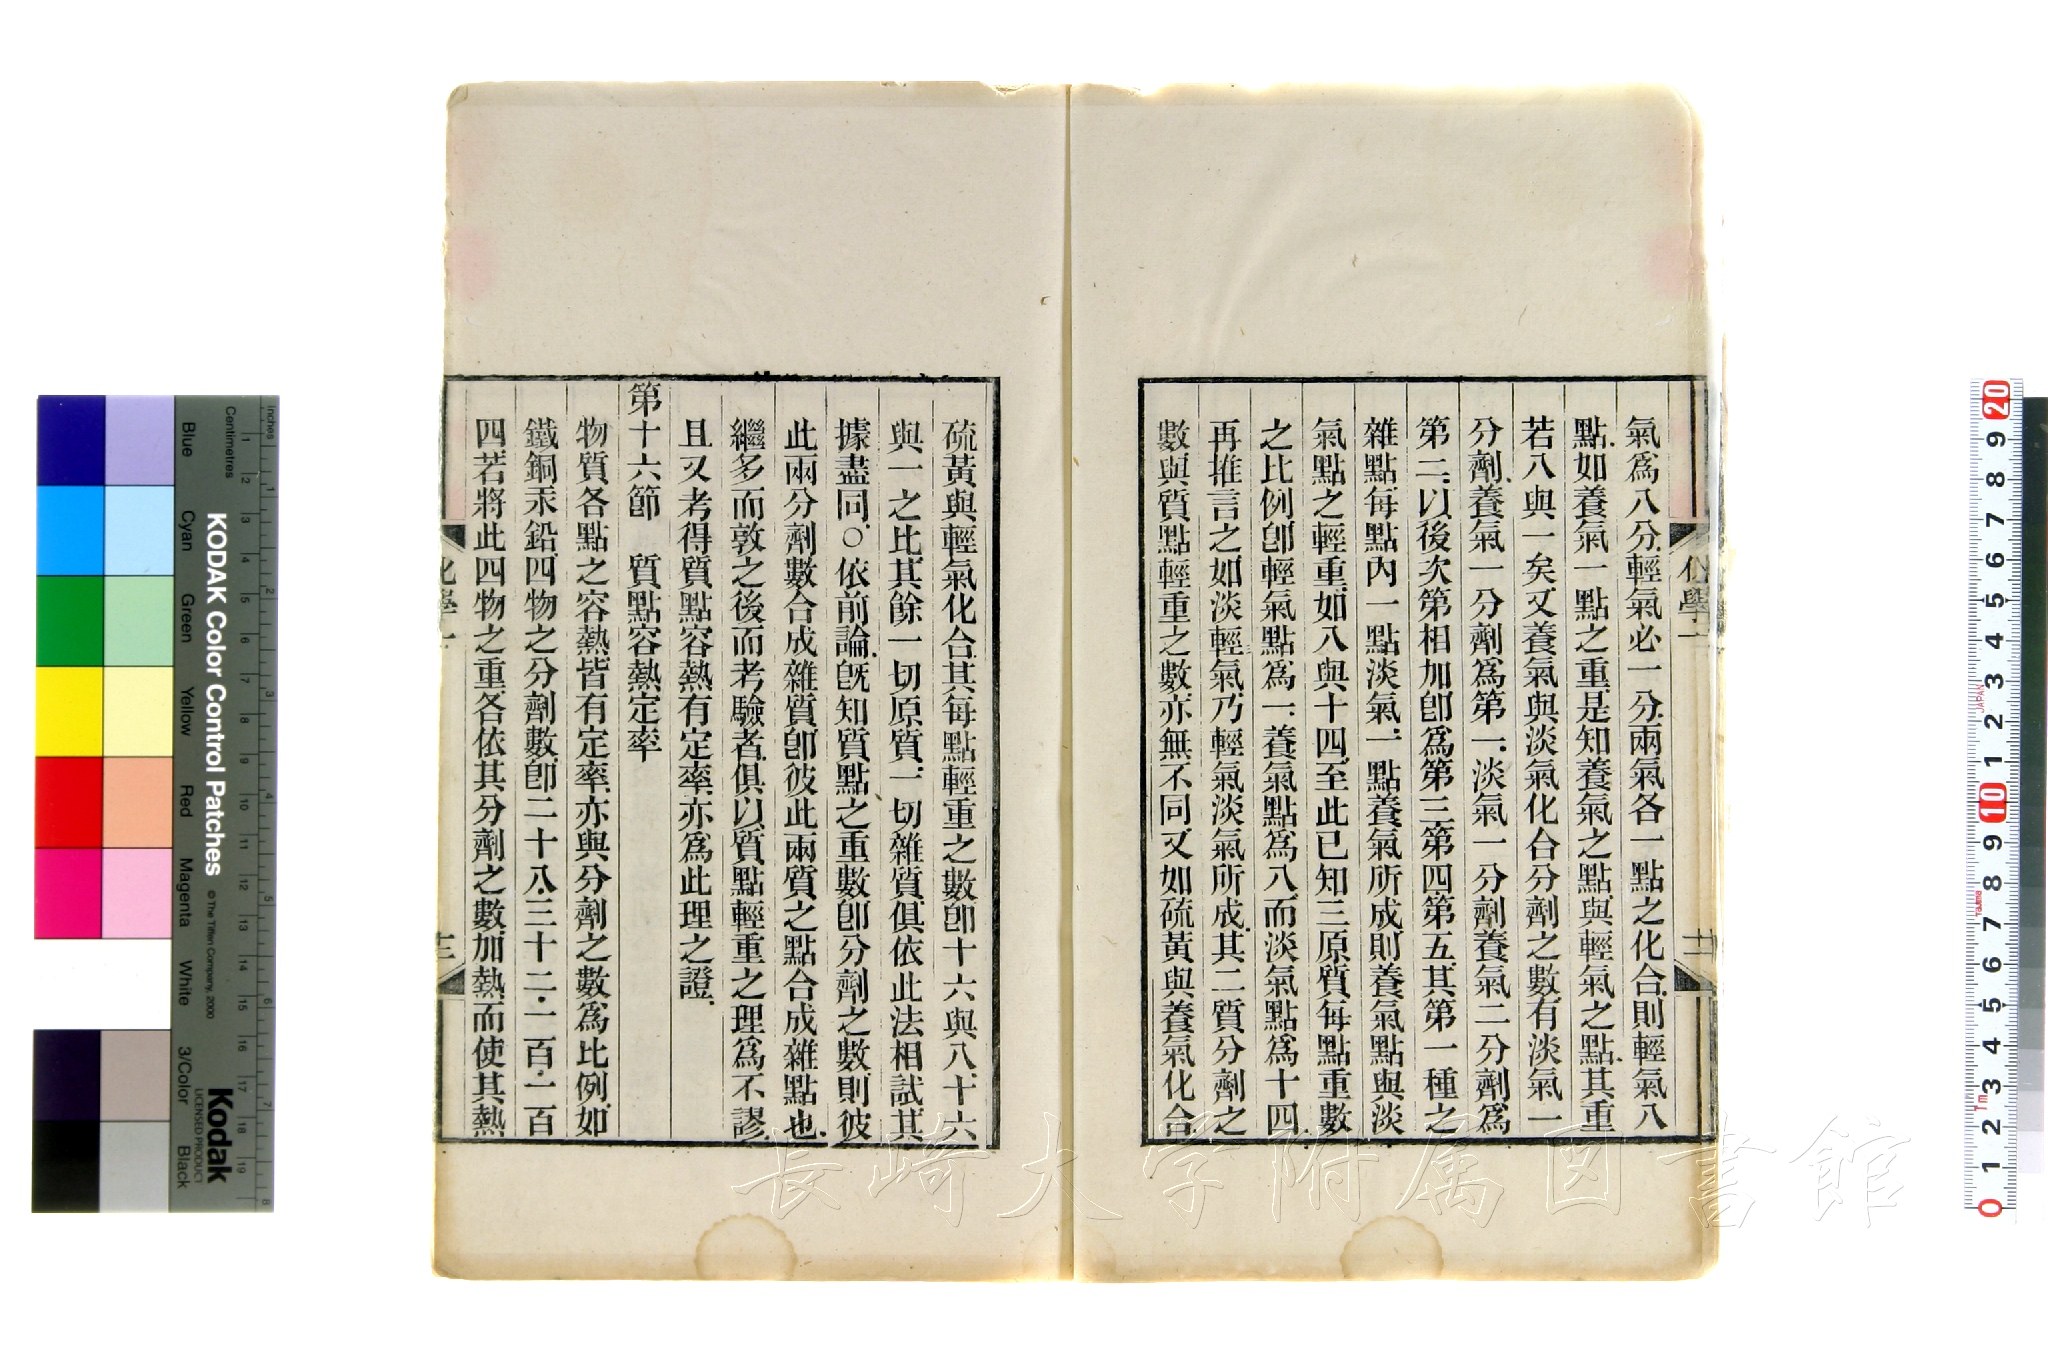 氣爲八分輕氣必一分兩氣各一點之化合則輕氣八
點如養氣一點之重是知養氣之點與輕氣之點其重
若八與一矣又養氣與淡氣化合分劑之數有淡氣一
分劑養氣一分劑爲第一淡氣一分劑養氣二分劑爲
第二以後次第相加卽爲第三第四第五其第一種之
雜點每點內一點淡氣一點養氣所成則養氣點與淡
氣點之輕重如八與十四至此已知三原質每點重數
之比例卽輕氣點爲一養氣點爲八而淡氣點爲十四
再推言之如淡輕氣乃輕氣淡氣所成其二質分劑之
數與質點輕重之數亦無不同又如硫黃與養氣化合
硫黃與輕氣化合其每點輕重之數卽十六與八十六
與一之比其餘一切原質一切雜質俱依此法相試其
據盡同○依前論旣知質點之重數卽分劑之數則彼
此兩分劑數合成雜質卽彼此兩質之點合成雜點也
繼多而敦之後而考驗者俱以質點輕重之理爲不謬
且又考得質點容熱有定率亦爲此理之證
第十六節 質點容熱定率
物質各點之容熱皆有定率亦與分劑之數爲比例如
鐵銅汞鉛四物之分劑數卽二十八三十二一百一百
四若將此四物之重各依其分劑之數加熱而使其熱
化學一
十二
化學一
十三
KODAK Color Control Patches
© The Tiffen Company, 2000
Kodak
LICENSED PRODUCT
Inches
Centimetres
Blue
Cyan
Green
Yellow
Red
Magenta
White
3/Color
Black
1 2 3 4 5 6 7 8
1 2 3 4 5 6 7 8 9 10 11 12 13 14 15 16 17 18 19
長崎大学附属図書館
0 1 2 3 4 5 6 7 8 9 10 1 2 3 4 5 6 7 8 9 20
JAPAN
Tajima
7m